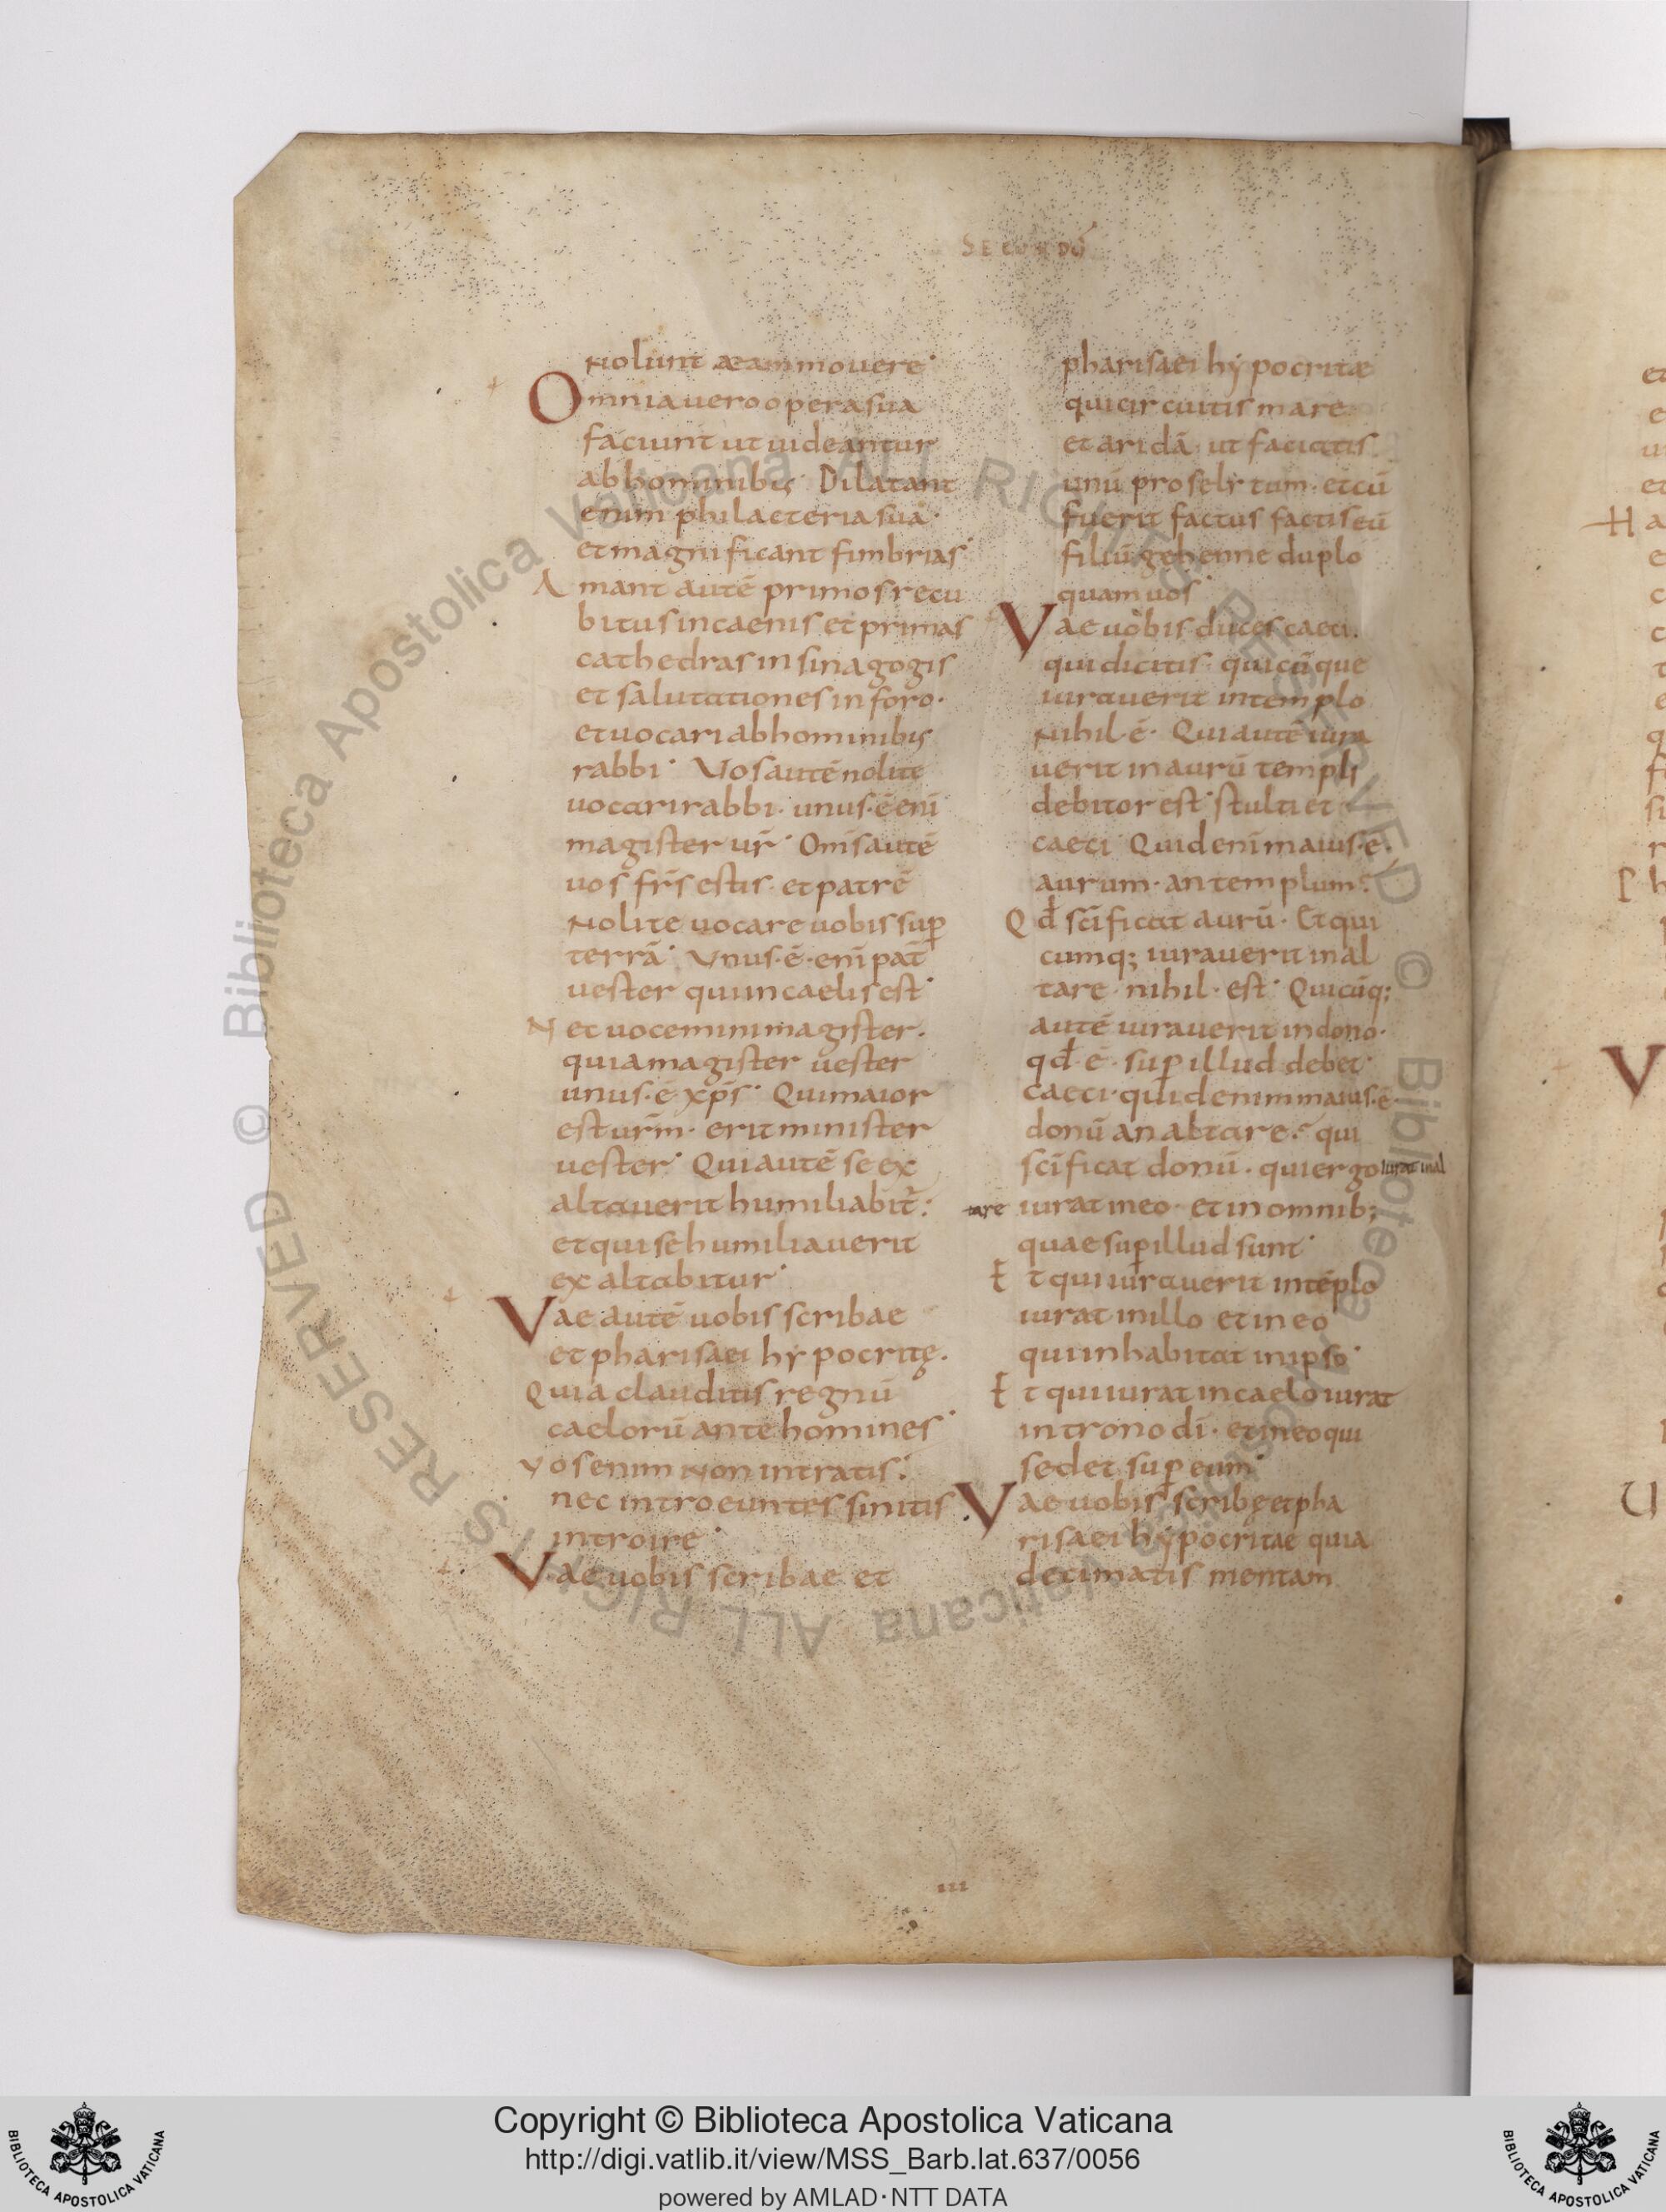 SECUNDŪ
Nolunt aeam movere·
Omnia vero opera sua
faciunt ut videantur
abhominibus· Dilatant
enim philacteria sua·
et magnificant fimbrias·
Amant autē primos recu
bitus in caenis et primas
cathedras in sinagogis
et salutationes in foro·
et vocari abhominibus
rabbi· Vos autē nolite
vocari rabbi· unus·ē enī
magister vr̄· Om̄s autē
vos fr̄s estis· et patrē
Nolite vocare vobis sup̄
terrā· Vnus·ē·enī pat̄
vester qui in caelis est·
Nec vocemini magister·
quia magister vester
unus·ē xp̄s· Qui maior
est ur̄m· erit minister
vester· Qui autē se ex
altaverit humiliabit̄·
et qui se humiliaverit
exaltabitur·
Vae autē vobis scribae
et pharisaei hypocritę·
Quia clauditis regnū
caelorū ante homines·
Vos enim non intratis·
nec introeuntes sinitis
introire·
Vae vobis scribae et
pharisaei hypocritae
qui circuitis mare
et aridā· ut faciatis
unū proselytum· et cū
fuerit factus facitis eū
filiū gehenne duplo
quam vos·
Vae vobis duces caeci·
qui dicitis· quicūque
iuraverit in templo
nihil·ē· Qui autē iura
verit in aurū templi
debitor est· stulti et
caeci Quid enī maius·ē·
aurum· an templum?
Qd̄ sc̄ificat aurū· Et qui
cumq; iuraverit in al
tare· nihil· est· Quicūq;
autē iuraverit in dono·
qd̄·ē· sup̄ illud debet·
caeci· quid enim maius·ē·
donū an altare? qui
sc̄ificat donū· qui ergo iurat in al
tare iurat in eo· et in omnib;
quae sup̄ illud sunt·
Et qui iuraverit in tēplo
iurat in illo et in eo
qui inhabitat in ipso·
Et qui iurat in caelo iurat
in trono dī· et in eo qui
sedet sup̄ eum·
Vae vobis scribę et pha
risaei hypocritae quia
decimatis mentam
III
© Biblioteca Apostolica Vaticana ALL RIGHTS RESERVED © Biblioteca Apostolica Vaticana ALL RIGHTS RESERVED
Copyright © Biblioteca Apostolica Vaticana
http://digi.vatlib.it/view/MSS_Barb.lat.637/0056
powered by AMLAD·NTT DATA
BIBLIOTECA APOSTOLICA VATICANA
BIBLIOTECA APOSTOLICA VATICANA